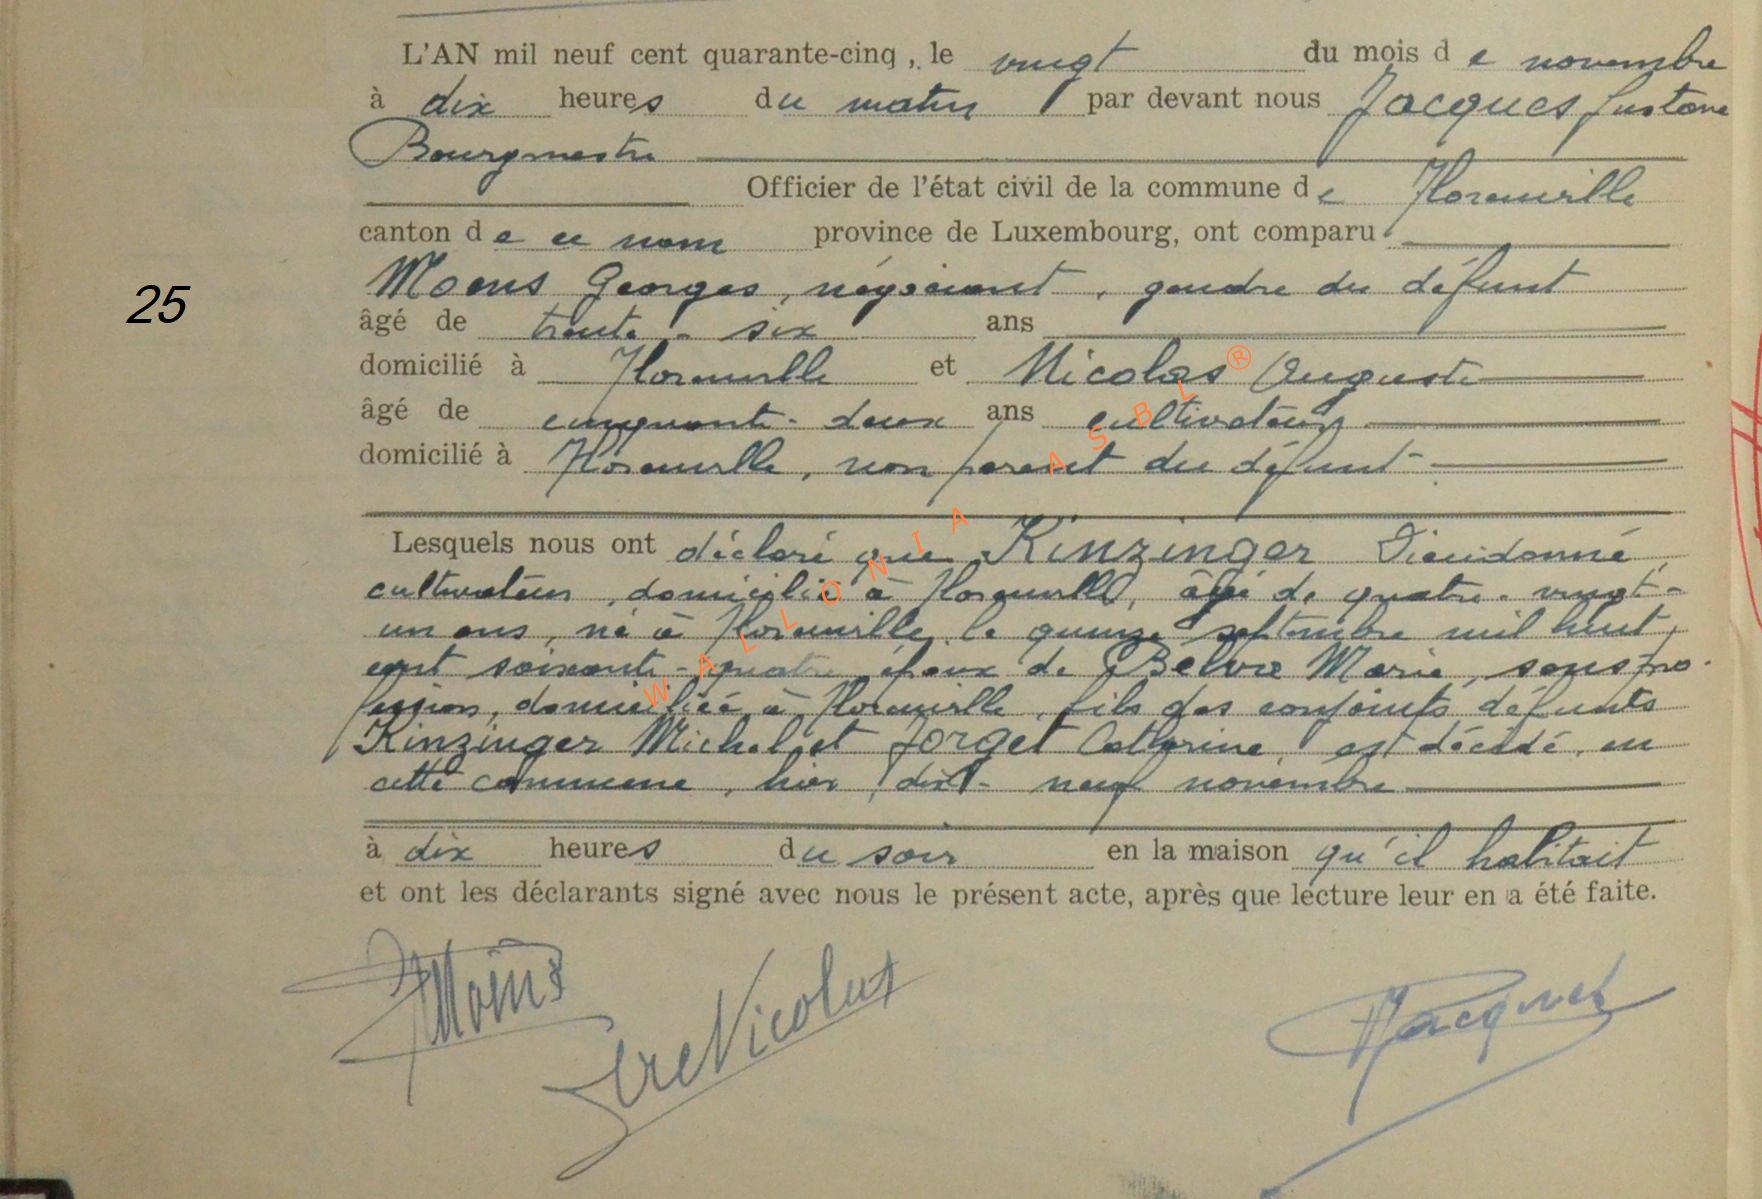 L'AN mil neuf cent quarante-cinq, le vingt du mois de novembre
à dix heures du matin par devant nous Jacques Gustave
Bourgmestre
Officier de l'état civil de la commune de Florenville
canton de ce nom province de Luxembourg, ont comparu
Moens Georges, négociant, gendre du défunt
25
âgé de trente-six ans
domicilié à Florenville et Nicolas Auguste
âgé de cinquante-deux ans cultivateur
domicilié à Florenville, non parent du défunt
Lesquels nous ont déclaré que Kinzinger Dieudonné,
cultivateur, domicilié à Florenville, âgé de quatre-vingt-
un ans, né à Florenville, le quinze septembre mil huit
cent soixante-quatre époux de Belvre Marie, sans pro-
fession, domiciliée à Florenville, fils des conjoints défunts
Kinzinger Michel et Forget Catherine, est décédé, en
cette commune, hier, dix-neuf novembre
à dix heures du soir en la maison qu'il habitait
et ont les déclarants signé avec nous le présent acte, après que lecture leur en a été faite.
Moens
Nicolas
Jacques
WALLONIA ASBL®